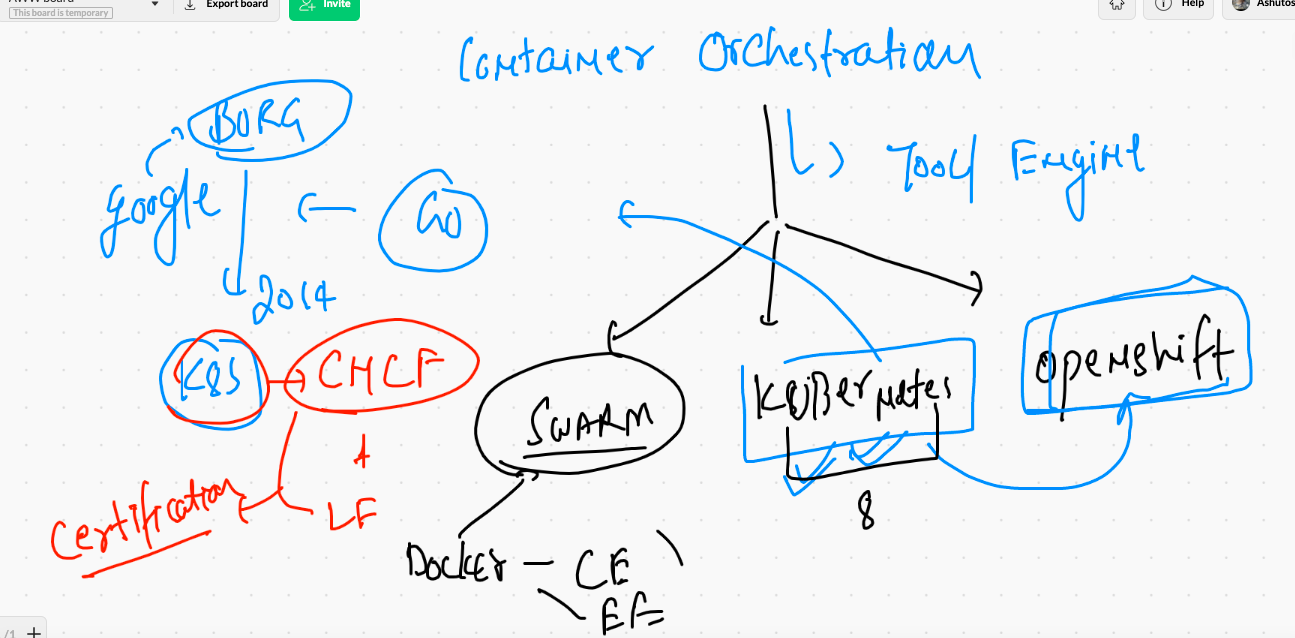 This board is temporary
Export board
Invite
Help
Ashutos
Container Orchestration
Tool/ Engine
BORG
google
Go
2014
K8S
CNCF
+
LF
Certification
SWARM
Docker - CE
EE
KuBernates
8
openshift
/1 +